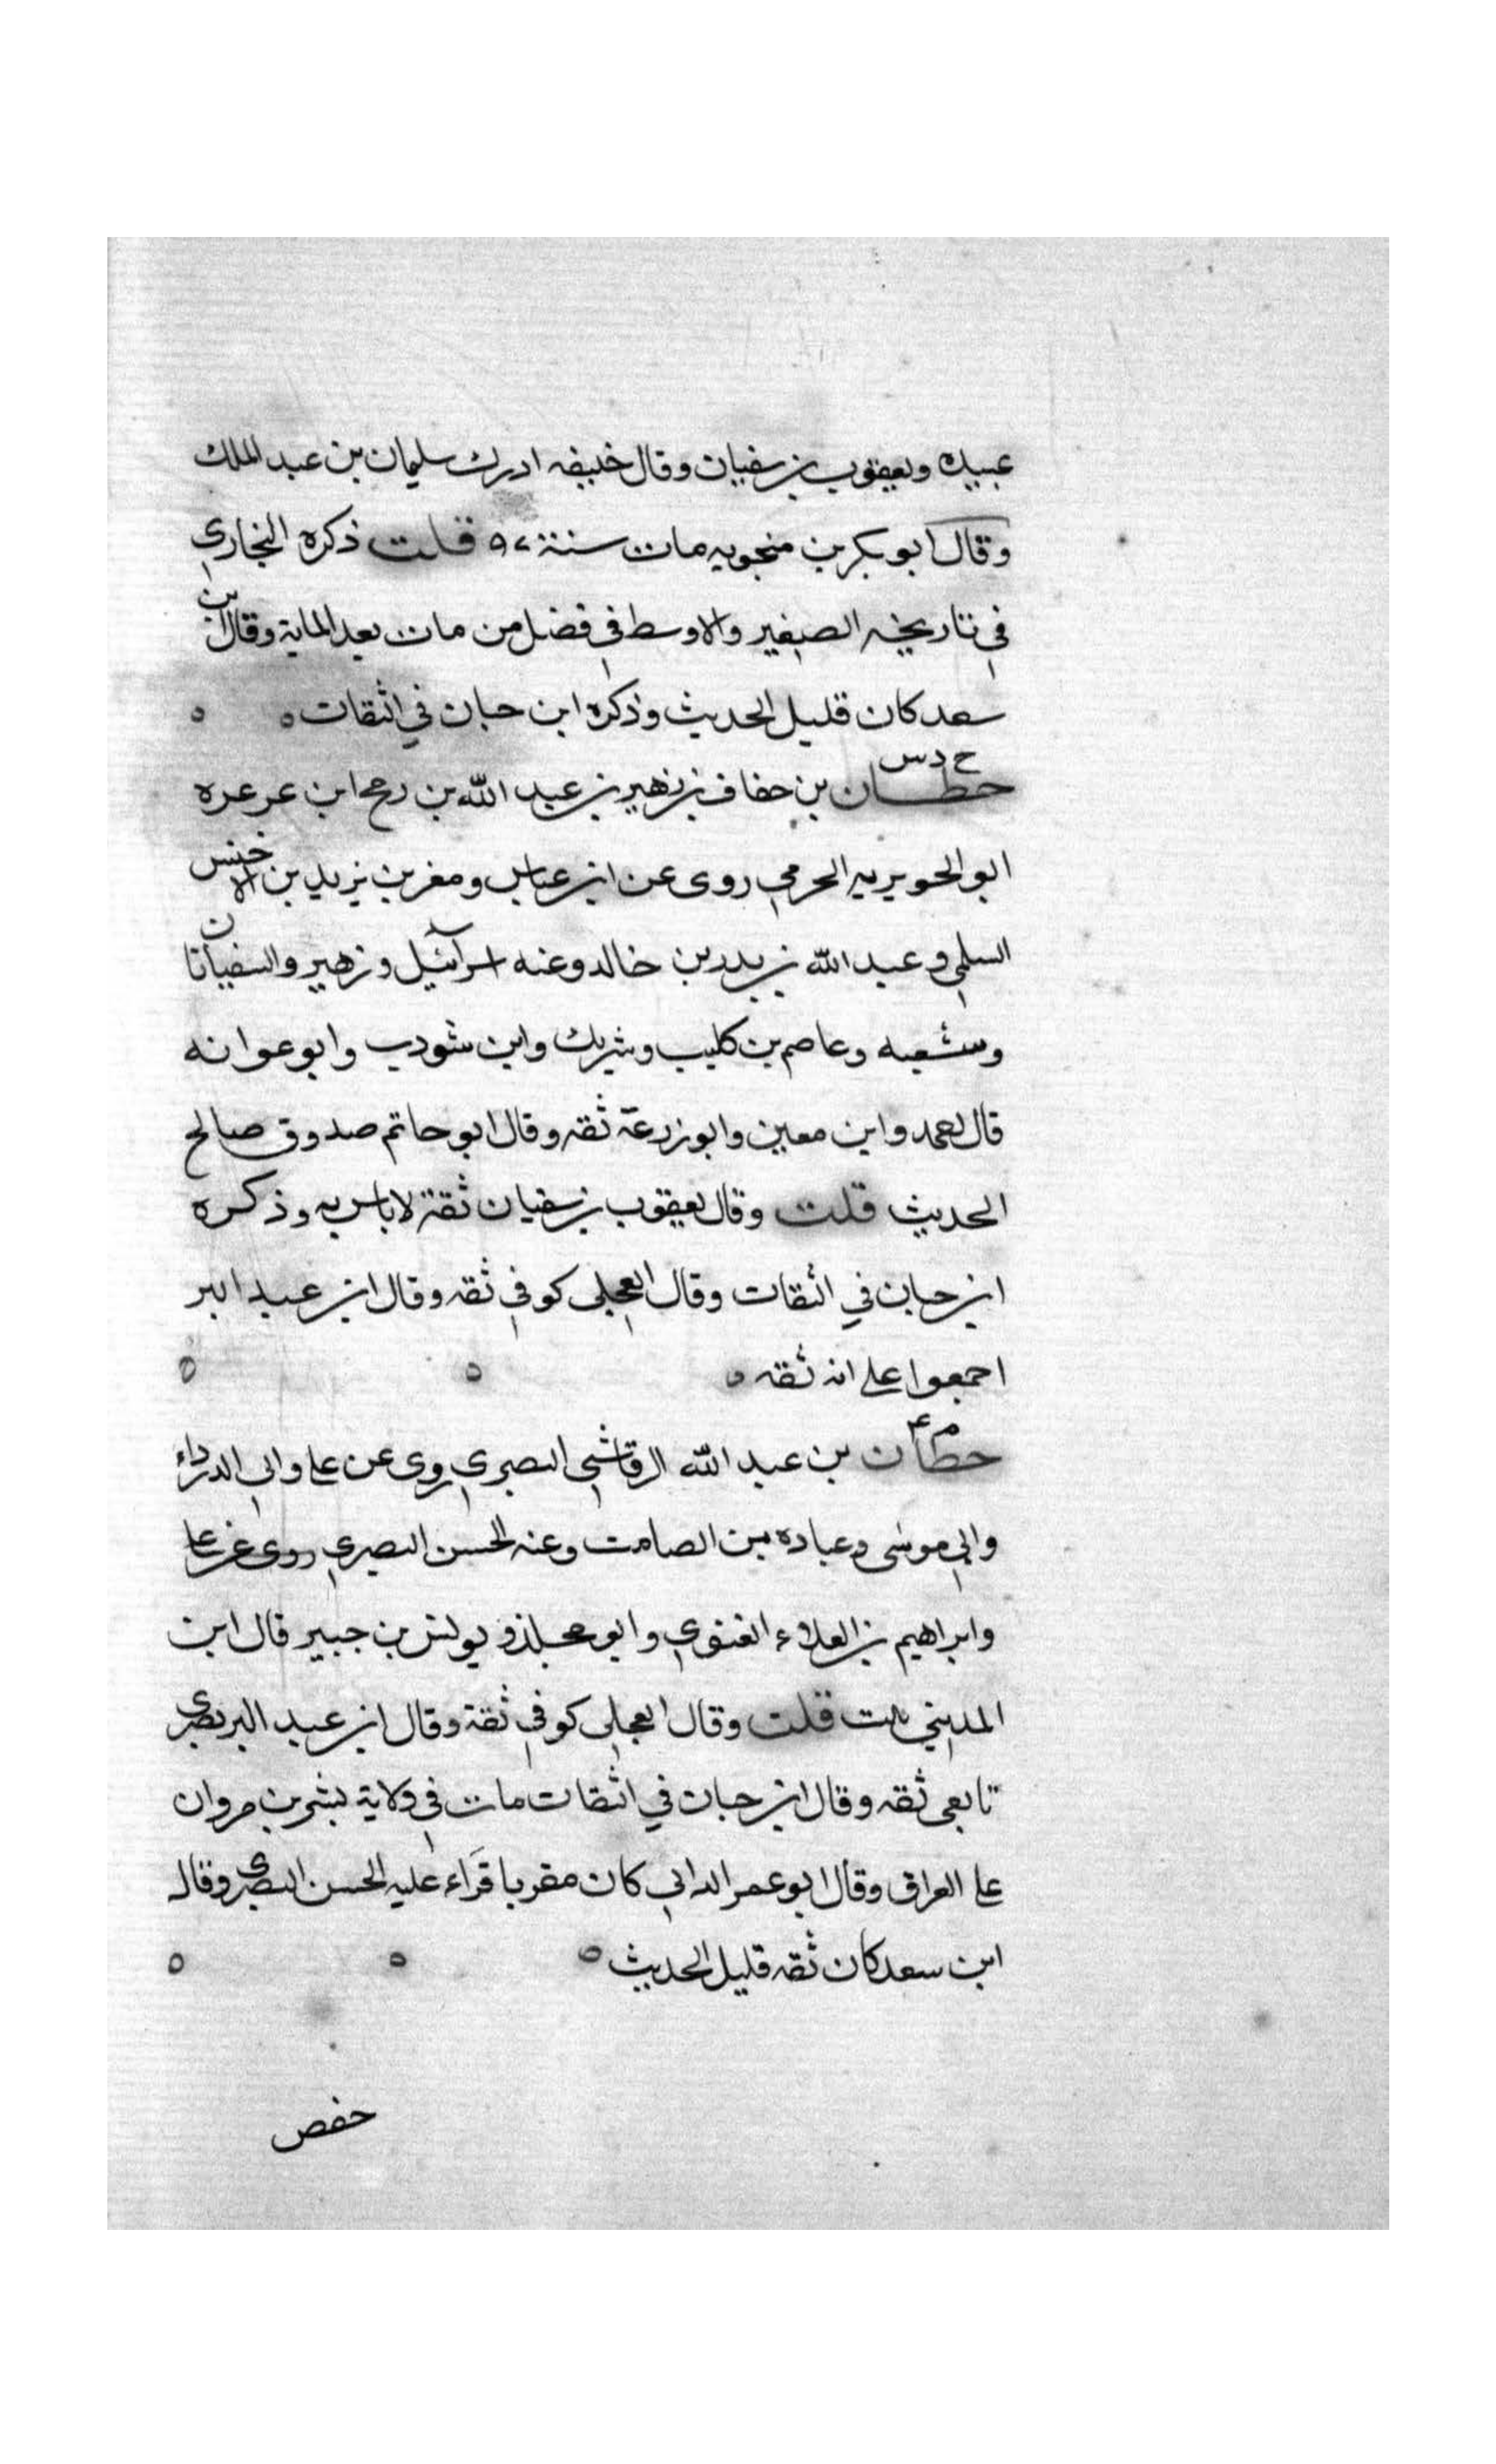 عبيده ويعقوب بن سفيان وقال خليفه ادرك سليمان بن عبد الملك
وقال ابو بكر بن منجويه مات سنة ٩٧ قلت ذكره البخاري
في تاريخه الصغير والاوسط في فضل من مات بعد الماية وقال ابن
سعد كان قليل الحديث وذكره ابن حبان في الثقات ه ه
خ د س
حطان بن خفاف بن زهير بن عبد الله بن رمح ابن عرعره
ابو الحويريه الجرمي روى عن ابن عباس ومعن بن يزيد بن الاخنس
السلمي وعبد الله بن بدر بن خالد وعنه اسرآئيل وزهير والسفيانان
وشعبه وعاصم بن كليب وشريك وابن شودب وابو عوانه
قال احمد وابن معين وابو زرعة ثقه وقال ابو حاتم صدوق صالح
الحديث قلت وقال يعقوب بن سفيان ثقة لا باس به وذكره
ابن حبان في الثقات وقال العجلي كوفي ثقه وقال ابن عبد البر
اجمعوا على انه ثقه ه ه ه
م ع
حطان بن عبد الله الرقاشي البصري روى عن على وابي الدرداء
وابي موسى وعباده بن الصامت وعنه الحسن البصري روى عن على
وابراهيم بن العلاء الغنوي وابو مجلز ويونس بن جبير قال ابن
المديني قلت وقال العجلي كوفي ثقة وقال ابن عبد البر بصرى
تابعى ثقه وقال ابن حبان في الثقات مات في ولاية بشر بن مروان
على العراق وقال ابو عمر الداني كان مقريا قراء عليه الحسن البصرى وقال
ابن سعد كان ثقه قليل الحديث ه ه ه
حفص